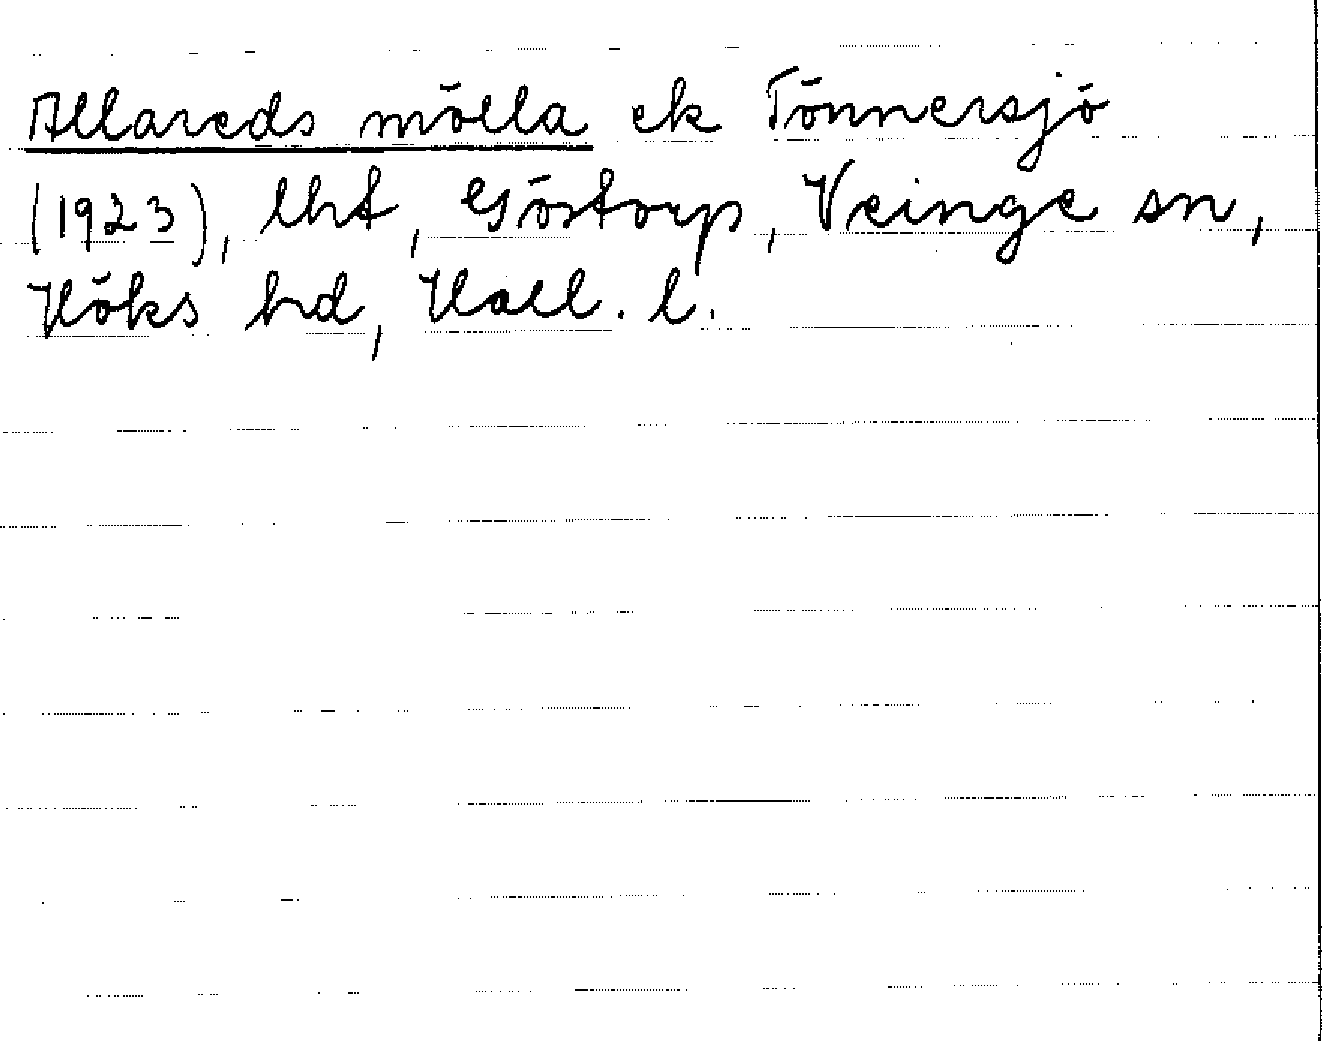 Allareds mölla ek Tönnersjö
(1923), lht, Göstorp, Veinge sn,
Höks hd, Hall. l.